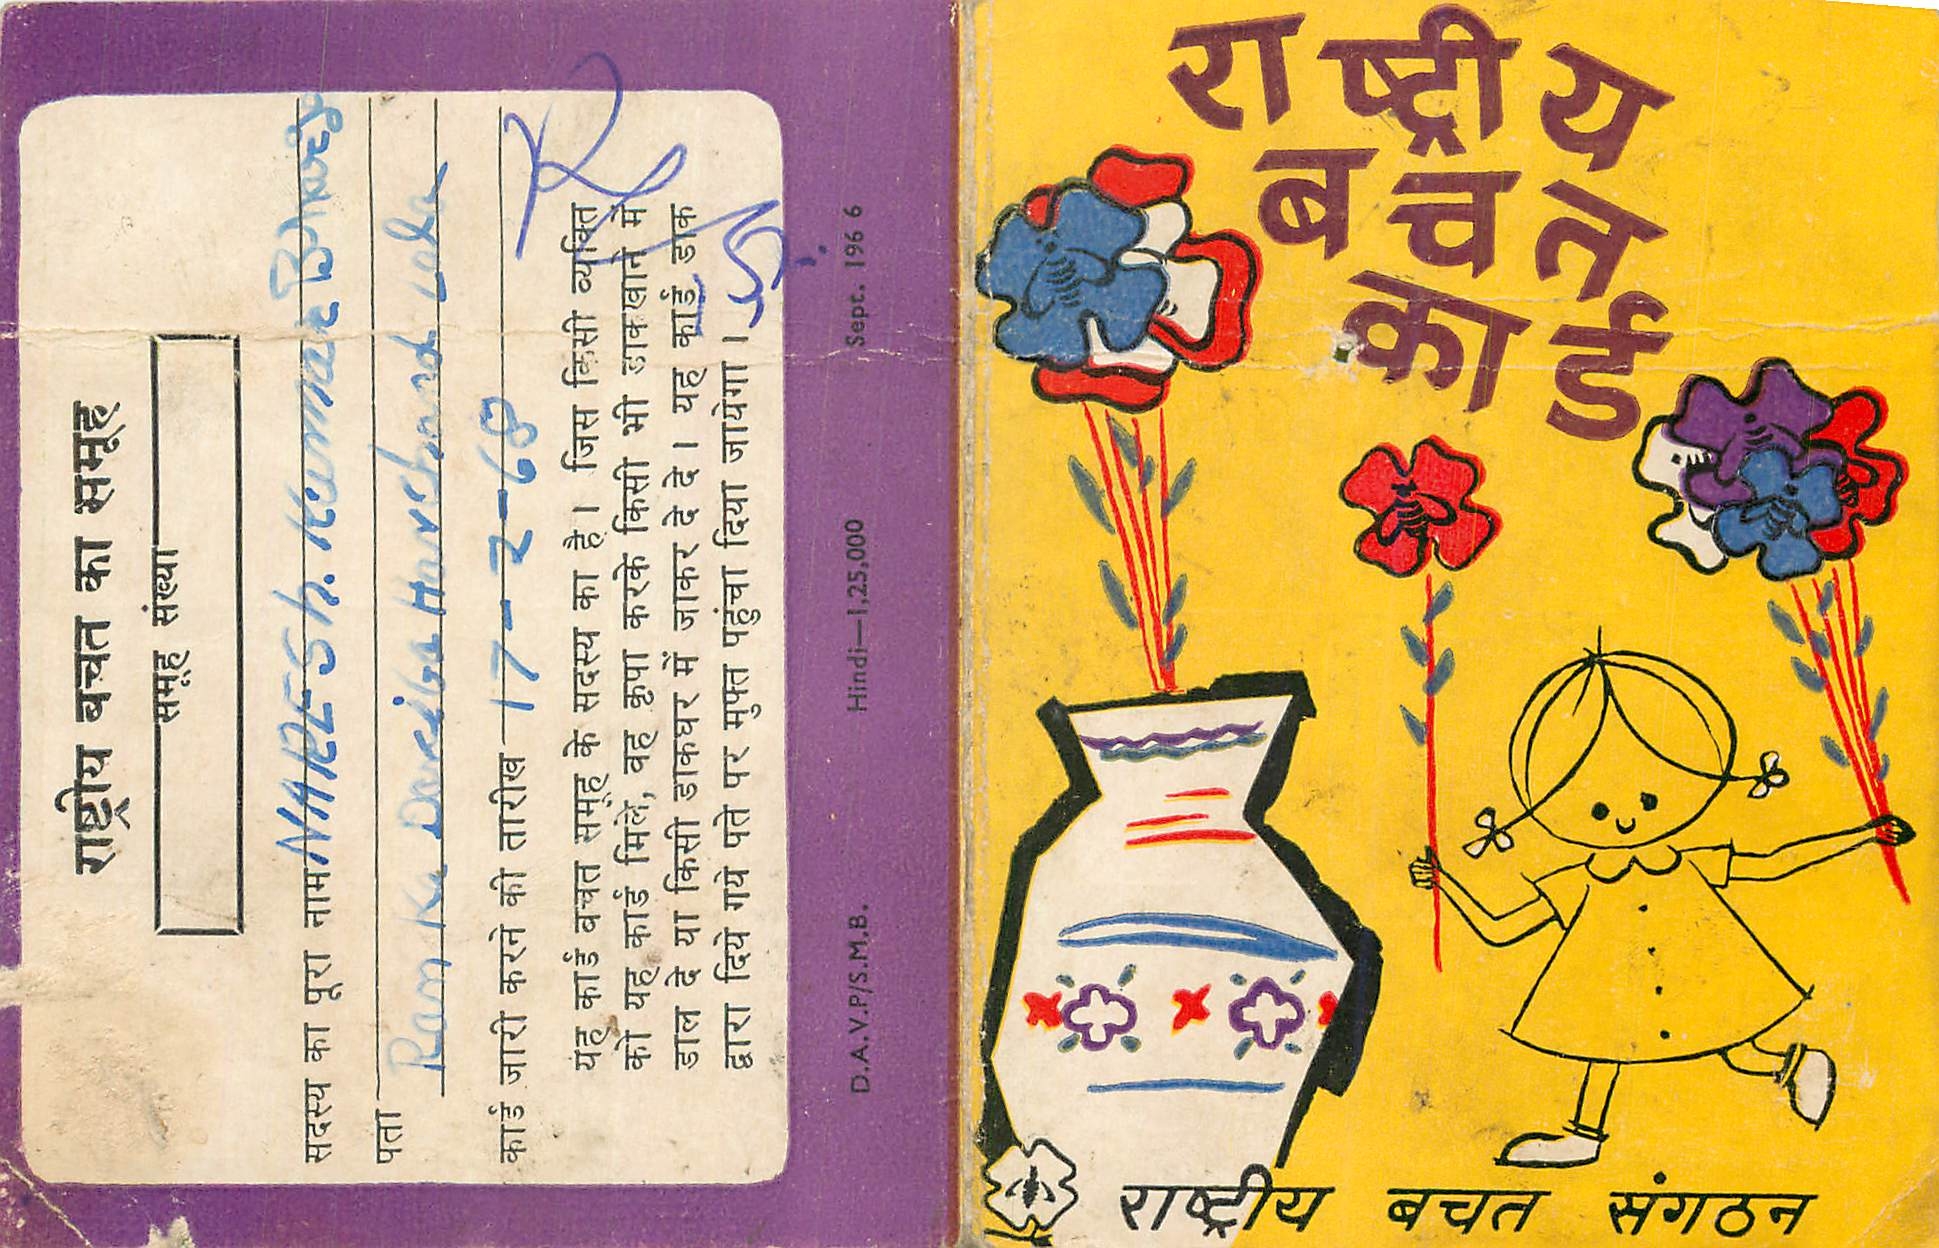 राष्ट्रीय बचत का समूह
समूह संख्या
सदस्य का पूरा नाम NARESH. Kumar
पता
Ram Ka Dariba Harchand
कार्ड जारी करने की तारीख 17-2-68
यह कार्ड बचत समूह के सदस्य का है। जिस किसी व्यक्ति
को यह कार्ड मिले, वह कृपा करके किसी भी डाकखाने में
डाल दे या किसी डाकघर में जाकर दे दे। यह कार्ड डाक
द्वारा दिये गये पते पर मुफ्त पहुंचा दिया जायेगा।
D.A.V.P/S.M.B. Hindi—1,25,000 Sept. 1966
राष्ट्रीय
बचत
कार्ड
राष्ट्रीय बचत संगठन